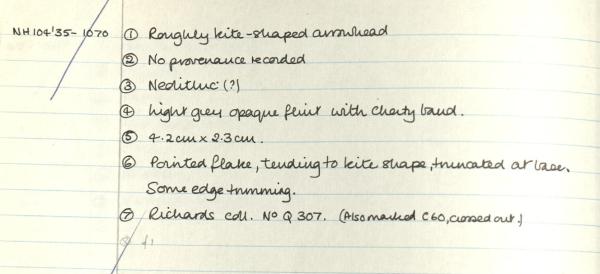 NH104'35-1070 ① Roughly kite-shaped arrowhead
② No provenance recorded
③ Neolithic (?)
④ Light grey opaque flint with cherty band.
⑤ 4.2cm x 2.3cm.
⑥ Pointed flake, tending to kite shape, truncated at base.
Some edge trimming.
⑦ Richards coll. No Q 307. (Also marked C60, crossed out.)